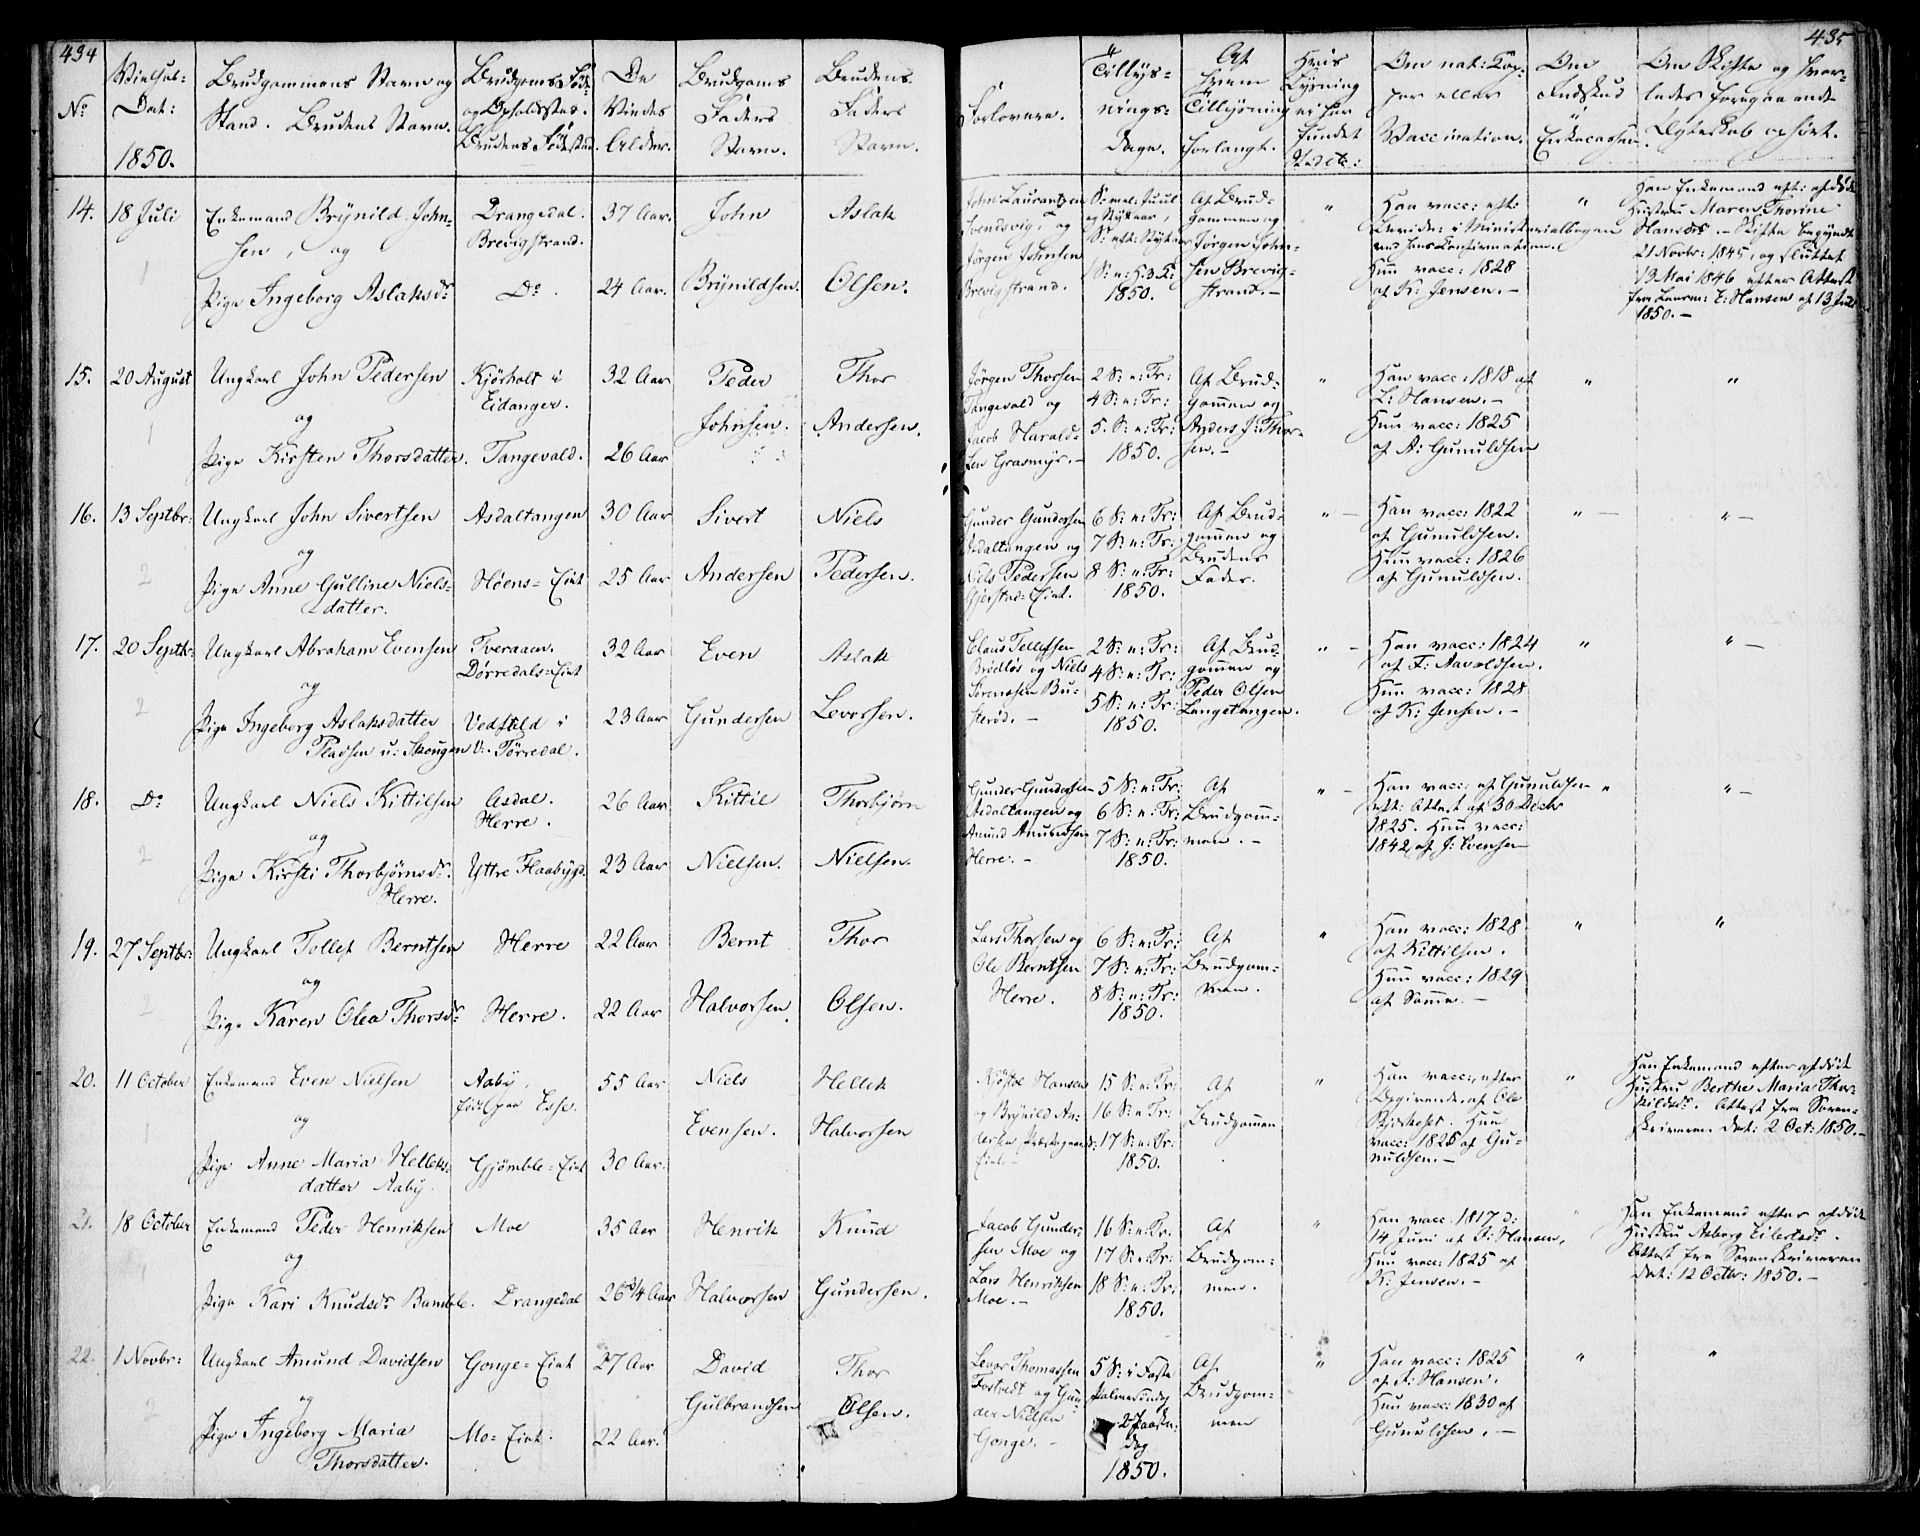 434
No
Vielses-
Dat:
1850.
Brudgommens Navn og
Stand. Brudens Navn.
Brudgoms Føde
og Opholdsted.
Brudens Fødested.
De
Viedes
Alder.
Brudgoms
Faders
Navn.
Brudens
Faders
Navn.
Forlovere.
Tillys-
nings-
Dage.
Af
hvem
Tillysning
forlangt.
Hvis
Lysning
ei har
fundet
Sted etc:
Om nat: Kop-
per eller
Vaccination.
Om
Indskud
i
Enkecassen.
Om Skifte og hvor-
ledes foregaaende
Ægteskab ophørt.
435
14.
18 Juli
Enkemand Brynild John-
sen, og
Pige Ingeborg Aslaksdr
Drangedal.
Brevigstrand.
Do.
37 Aar.
24 Aar.
John
Brynildsen.
Aslak
Olsen.
John Laurantzen
Svendsvig, og
Jörgen Johnsen
Brevigstrand.
1850.
Af Brud-
gommen og
Jørgen John-
sen Brevig-
strand.-
"
Han vacc: eft:
ved hans Confirmation.
Hun vacc: 1828
af K: Jensen.-
"
Han Enkemand eft: afdøde
Hustru Maren Thorine
Hansdr. - Skifte begyndt
21 Novbr: 1845, og sluttet
13 Mai 1846 efter Attest
fra Lensm: E: Hansen af 13 Juli
1850.-
15.
20 August
Ungkarl John Pedersen
og
Pige Kirsten Thorsdatter.
Kjörholt i
Eidanger.
Tangevald.
32 Aar
26 Aar
Peder
Johnsen.
Thor
Andersen.
Jörgen Thorsen
Tangevald og
Jacob Harald-
sen Grasmyr.-
2 S: e: Tr:
4 S: e: Tr:
5. S: e: Tr:
1850.
Af Brud-
gommen og
Anders J: Thor-
sen.-
"
Han vacc: 1818 af
L: Hansen.-
Hun vacc: 1825
af A: Gunuldsen
"
"
16.
13 Septbr:
Ungkarl John Sivertsen
og
Pige Anne Gulline Niels-
datter.
Asdaltangen
Høens=Eiet
30 Aar
25 Aar
Sivert
Andersen
Niels
Pedersen.
Gunder Gundersen
Asdaltangen og
Niels Pedersen
Gjerstad=Eiet.
6 S: e: Tr:
7 S: e: Tr:
8 S: e: Tr:
1850.
Af Brud-
gommen og
Brudens
Fader.
" -
Han vacc: 1822
af Gunuldsen.
Hun vacc: 1826
af Gunuldsen.
" -
" -
17.
20 Septbr:
Ungkarl Abraham Evensen
og
Pige Ingeborg Aslaksdatter
Pladsen u: Skougen
Tveraaen.
Dørredals=Eiet
Vedfald i
V: Tørredal.
32 Aar
23 Aar
Even
Gundersen
Aslak
Levorsen.
Claus Tellefsen
Brødløs og Niels
Sørensen Bu-
sterød.-
2 S: e: Tr:
4 S: e: Tr:
5 S: e: Tr:
1850.
Af Brud-
gommen og
Peder Olsen
Langetangen.
" -
Han vacc: 1824
af T: Aavoldsen.
Hun vacc: 1828
af K: Jensen.-
"
" -
18.
Do
Ungkarl Niels Kittilsen
og
Pige Kirsti Thorbjørnsdr.
Herre.
Asdal.
Herre.
Yttre Flaabygd.
26 Aar
23 Aar
Kittil
Nielsen.
Thorbjørn
Nielsen.
Gunder Gundersen
Asdaltangen og
Amund Amundsen
Herre.-
5 S: e: Tr:
6 S: e: Tr:
7 S: e: Tr:
1850.
Af
Brudgom-
men.-
" -
Han vacc: af Gunuldsen
eft: Attest af 30 Decbr
1825. Hun vacc:
1842 af J: Evensen
"
" -
19.
27 Septbr:
Ungkarl Tollef Berntsen
og
Pige Karen Olea Thorsdr
Herre
Herre.
22 Aar
22 Aar
Bernt
Halvorsen.
Thor
Olsen.
Lars Thorsen og
Ole Berntsen
Herre.
6 S: e: Tr:
7 S: e: Tr:
8 S: e: Tr:
1850.
Af
Brudgom-
men.
"
Han vacc: 1828
af Kittilsen.
Hun vacc: 1829
af Samme.-
"
"
20.
11 October
Enkemand Even Nielsen
og
Pige Anne Maria Helleks-
datter Aaby.
Aaby.
født paa Esse.
Gjömble=Eiet
55 Aar
30 Aar.
Niels
Evensen.
Hellek
Halvorsen
Hansen
og Brynild An-
dersen
Eiet-
15 S: e: Tr:
16 S: e Tr:
17 S: e: Tr:
1850.
Af
Brudgommen
"
Han vacc:, efter
Opgivende, af Ole
Hun
vacc: 1825 af Gu-
nuldsen.-
"
Han Enkemand efter afdøde
Hustru Berthe Maria Thor-
kildsdr. Attest fra Soren-
skriveren dat: 2 Oct: 1850.-
21.
18 October
Enkemand Peder Henriksen
og
Pige Kari Knudsdr Bamble.
Moe
Drangedal
35 Aar
26 3/4 Aar
Henrik
Halvorsen
Knud
Gundersen.
Jacob Gunder-
sen Moe og
Lars Henriksen
Moe.-
16 S: e: Tr:
17 S: e: Tr:
18 S: e: Tr:
1850.
Af
Brudgom-
men.
"
Han vacc. 1817 d:
14 Juni af J: Hansen,
Hun vacc: 1825 af
K: Jensen.-
"
Han Enkemand efter afdøde
Hustru Asborg Eilertsdr.
Attest fra Sorenskriveren
dat: 12 Octbr: 1850.-
22.
1 Novbr:
Ungkarl Amund Davidsen
og
Pige Ingeborg Maria
Thorsdatter.
Gonge=Eiet
Mo=Eiet.
27 Aar
22 Aar.
David
Gulbrandsen
Thor
Olsen.
Levor Thomassen
Fostvedt og Gun-
der Nielsen
Gonge.-
5 S: i Faste
Palmesøndag
2 Paaske-
dag
1850.
Af
Brudgom-
men
"
Han vacc: 1825
af J: Hansen.
Hun vacc: 1830 af
Gunuldsen.-
"
"